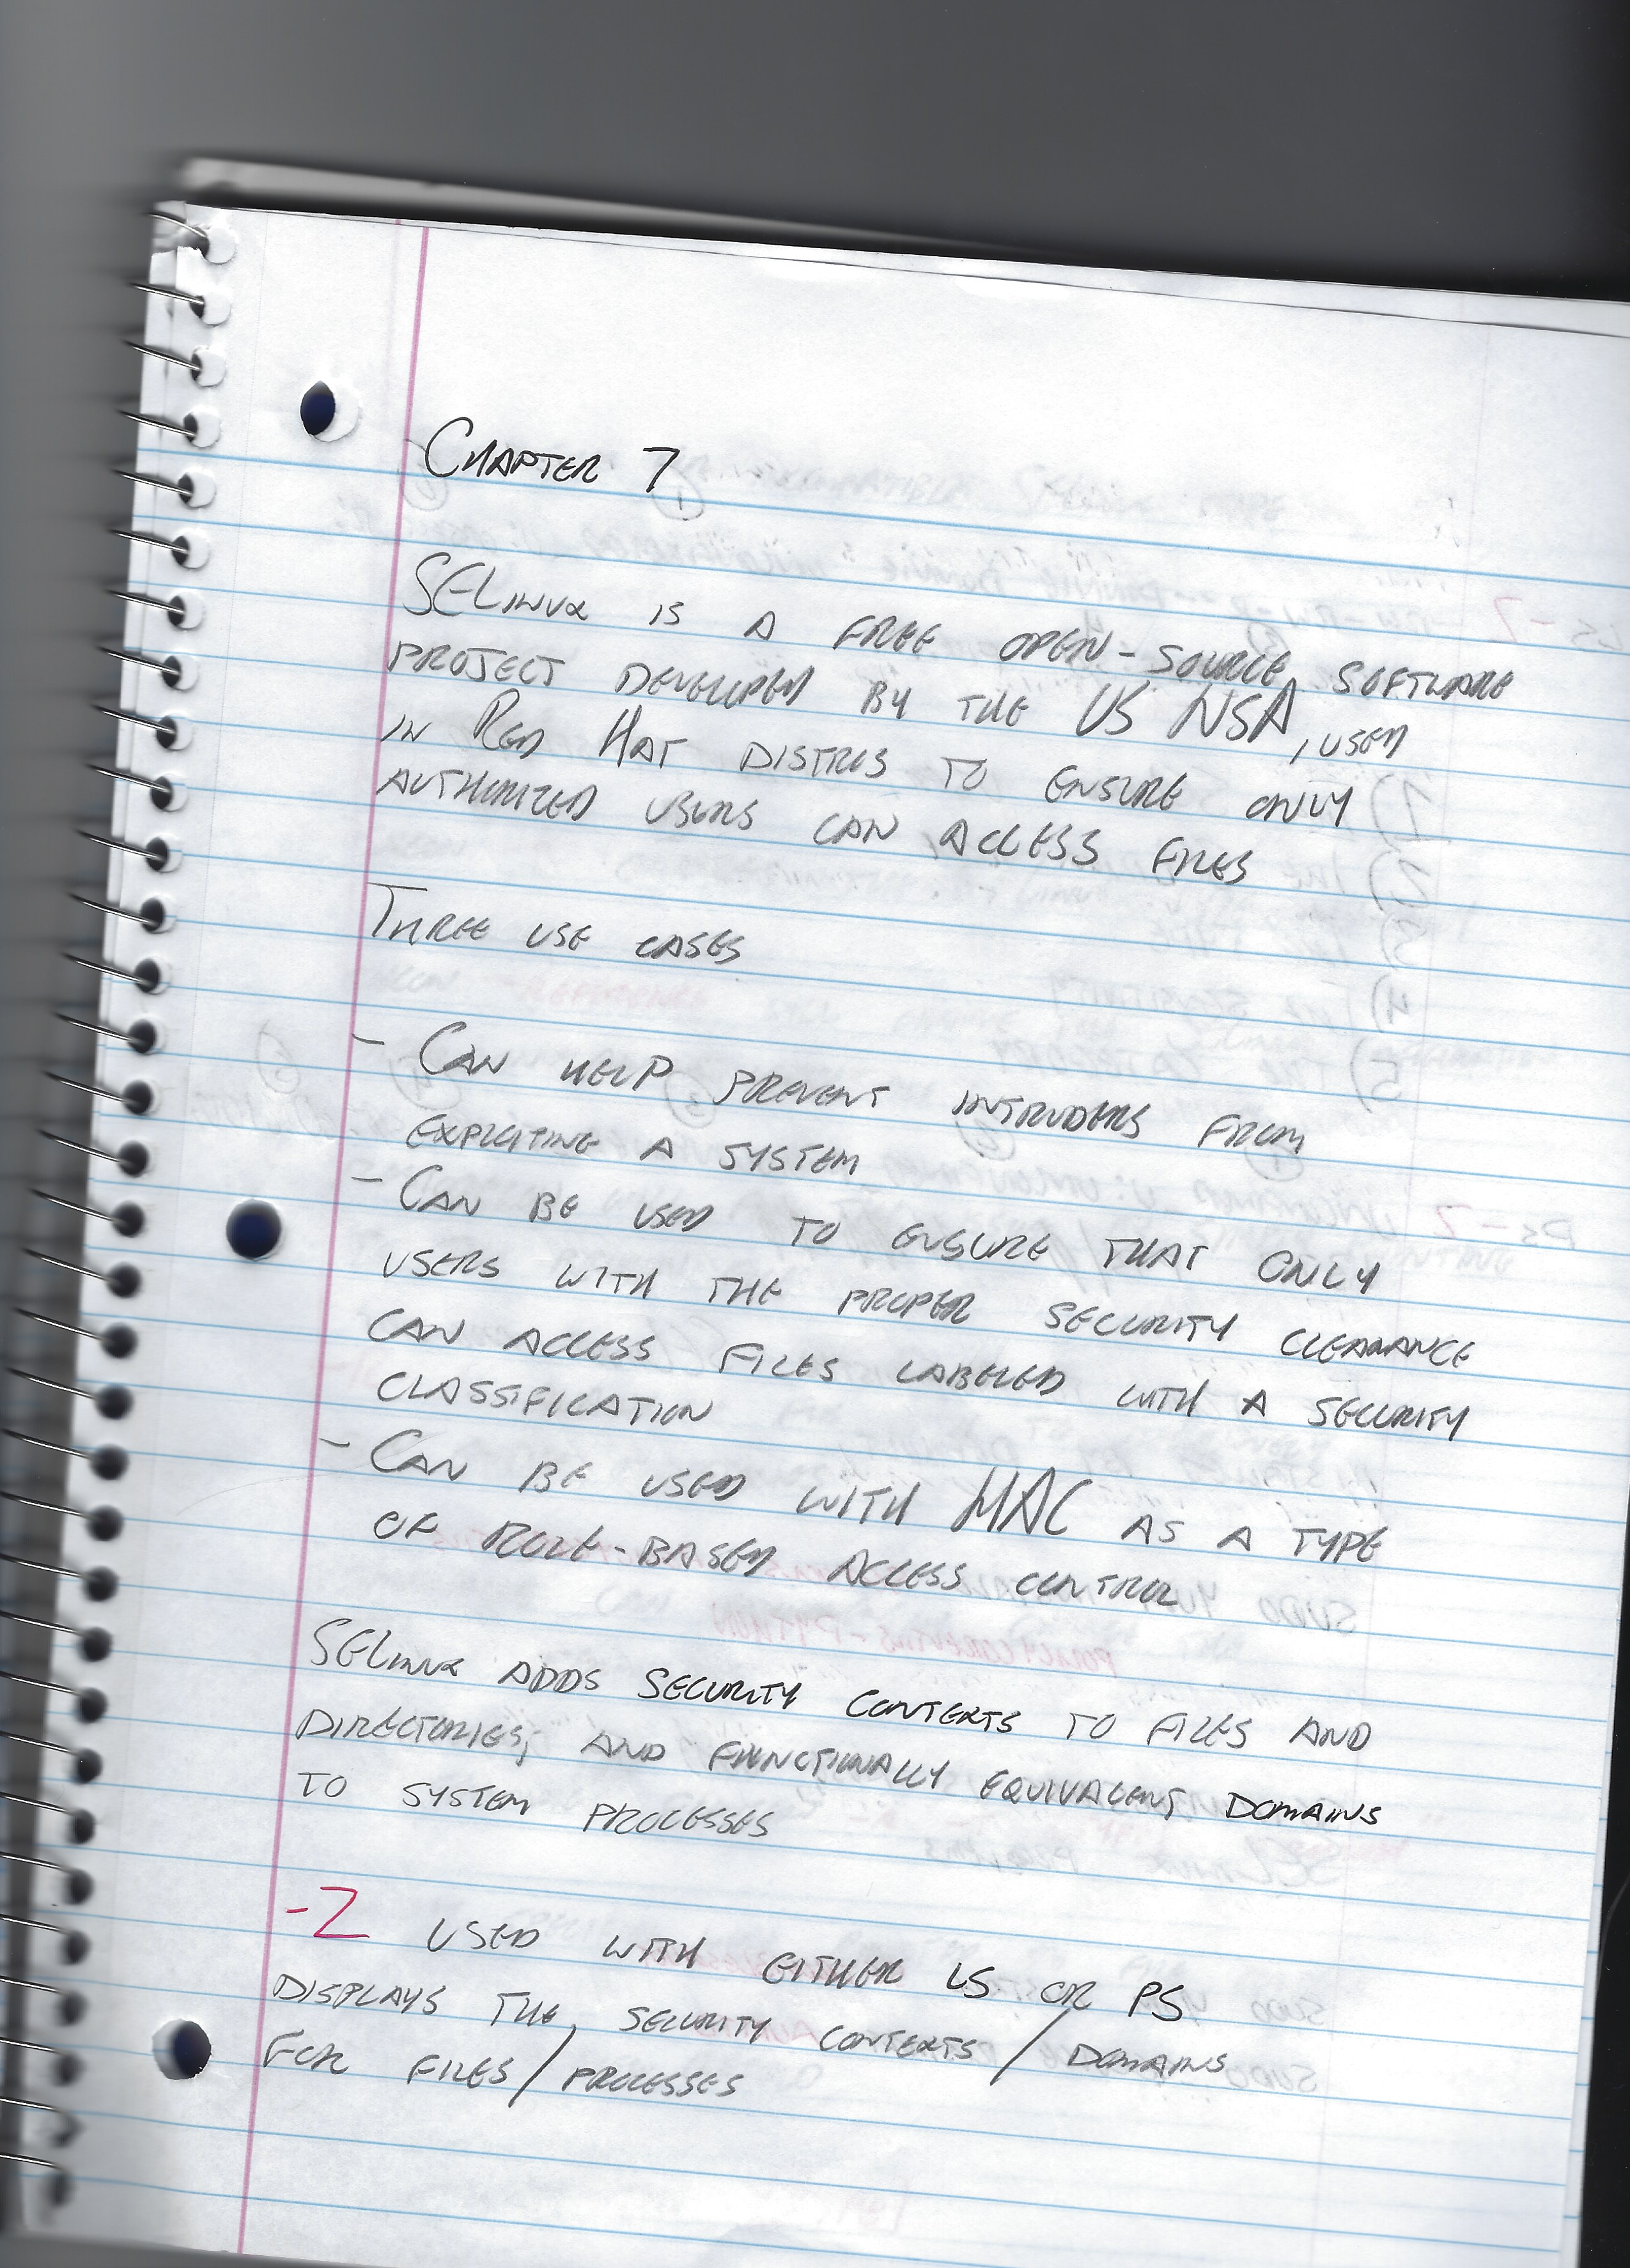 CHAPTER 7
SELinux IS A FREE OPEN-SOURCE SOFTWARE
PROJECT DEVELOPED BY THE US NSA, USED
IN RED HAT DISTROS TO ENSURE ONLY
AUTHORIZED USERS CAN ACCESS FILES
THREE USE CASES
- CAN HELP PREVENT INTRUDERS FROM
EXPLOITING A SYSTEM
- CAN BE USED TO ENSURE THAT ONLY
USERS WITH THE PROPER SECURITY CLEARANCE
CAN ACCESS FILES LABELED WITH A SECURITY
CLASSIFICATION
- CAN BE USED WITH MAC AS A TYPE
OF ROLE-BASED ACCESS CONTROL
SELinux ADDS SECURITY CONTEXTS TO FILES AND
DIRECTORIES, AND FUNCTIONALLY EQUIVALENT DOMAINS
TO SYSTEM PROCESSES
-Z USED WITH EITHER LS OR PS
DISPLAYS THE SECURITY CONTEXTS / DOMAINS
FOR FILES / PROCESSES